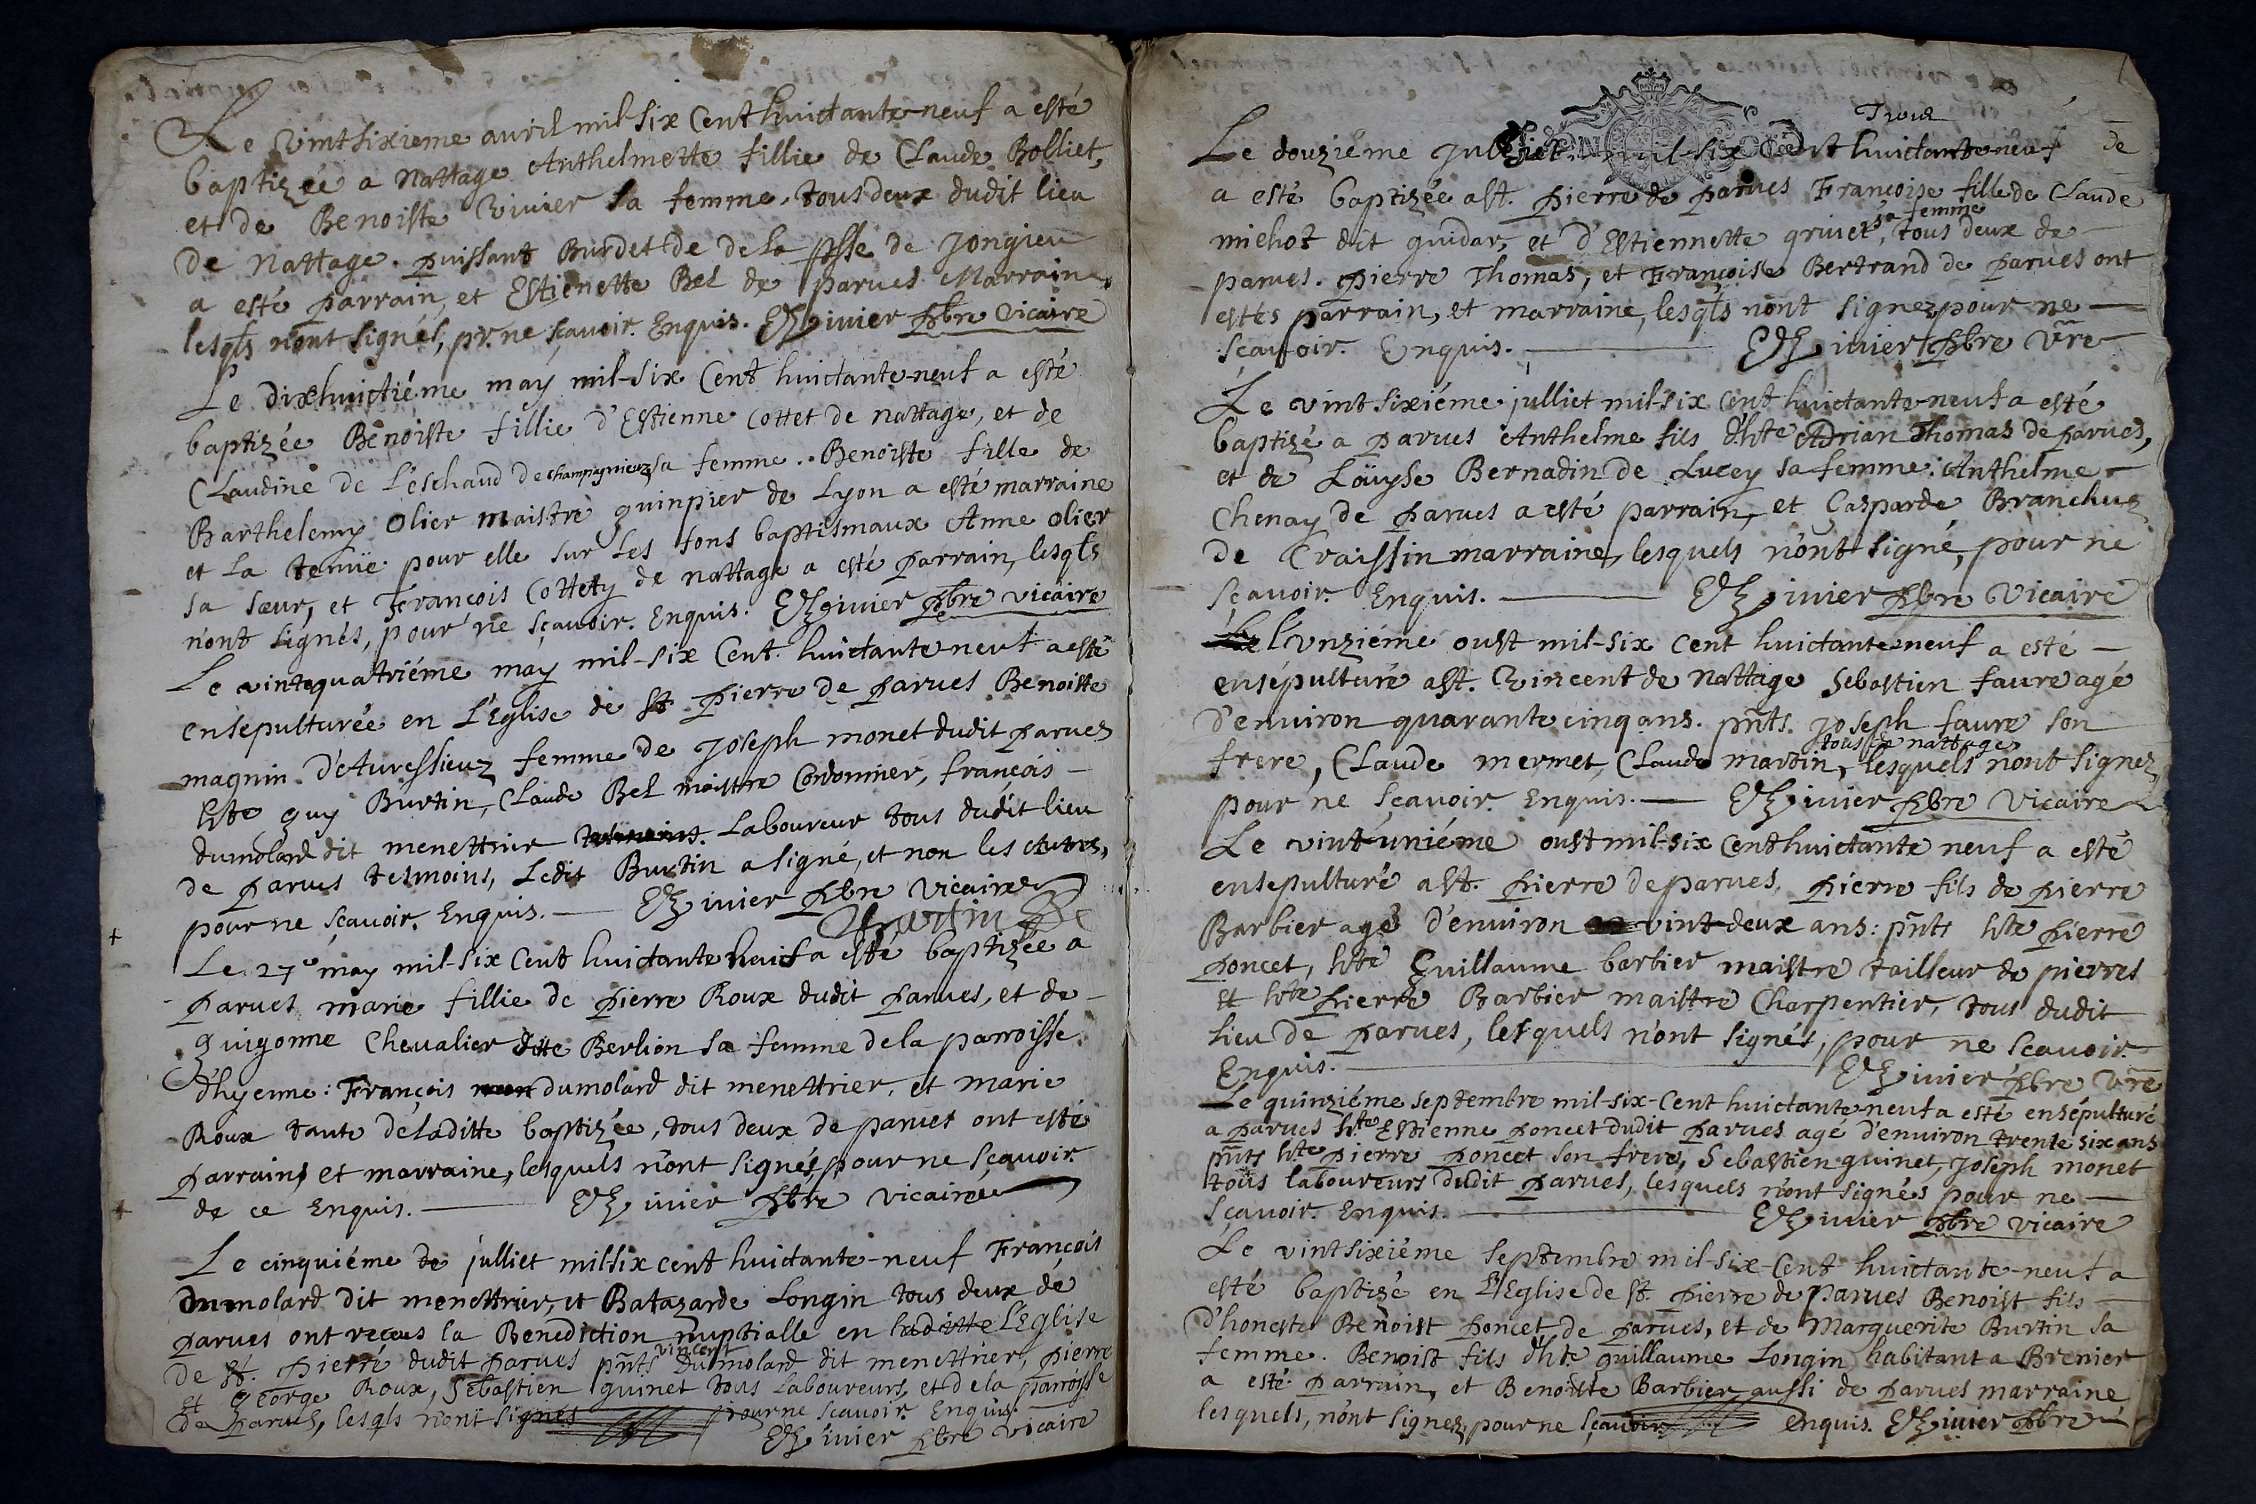 Le vintsixieme avril mil-six Cent huictante-neuf a esté
baptizée a Nattage Anthelmette fillie de Claude Bolliet,
et de Benoiste Vivier sa femme, tous deux dudit lieu
de Nattage. puissant Burdet de de la psse de Jongieu
a esté parrain, et Estienette Bel de parves Marraine
lesqls n'ont signés, pr. ne sçavoir. Enquis. vivier pbre vicaire
Le dixhuictiéme may mil-six Cent huictante-neuf a esté
baptizée Benoiste fillie d'Estienne Cottet de nattage, et de
Claudine de L'eschaud de champagnieuz sa femme. Benoiste fille de
Barthelemy Olier maistre guinpier de Lyon a esté marraine
et la tenüe pour elle sur les fons baptismaux Anne olier
sa sœur, et François Cottety de nattage a esté parrain, lesqls
n'ont signés, pour ne sçavoir. Enquis. vivier pbre vicaire
Le vintequatriéme may mil-six Cent huictante neuf a esté
ensepulturée en L'Eglise de st pierre de parves Benoiste
magnin d'Avressieuz femme de Joseph monet dudit parves
hte guy Burtin, Claude Bel maistre Cordonnier, françois
dumolard dit menettrier Laboureur tous dudit lieu
de parves tesmoins, Ledit Burtin a signé, et non les autres,
pour ne sçavoir. Enquis. vivier pbre vicaire
Burtin
Le 27e may mil-six Cent huictante neuf a esté baptizée a
parves marie fillie de pierre Roux dudit parves, et de
guigonne Chevalier ditte Berlion sa femme de la parroisse
d'hyenne: François dumolard dit menettrier, et marie
Roux tante de laditte baptizée, tous deux de parves ont esté
parrains et marraine, lesquels n'ont signés, pour ne sçavoir
de ce Enquis. vivier pbre vicaire
Le cinquiéme de julliet mil six cent huictante-neuf François
dumolard dit menettrier, et Batazarde Longin tous deux de
parves ont receus la Benediction nuptialle en laditte L'Eglise
de st. pierre dudit parves pnts vincent dumolard dit menettrier, pierre
et george Roux, Sebastien guinet tous Laboureurs, et de la parroisse
de parves, lesqls n'ont signés pour ne scavoir. Enquis.
vivier pbre vicaire
Trois
Le douziéme julliet mil-six Cent huictante-neuf de
a esté baptizée a st. pierre de parves Françoise fille de Claude
michot dit guidar, et d'Estiennette grivet, sa femme tous deux de
parves. pierre Thomas, et Françoise Bertrand de parves ont
estés parrain, et marraine, lesqls n'ont signez pour ne
sçavoir. Enquis. vivier pbre vre
Le vint sixiéme julliet mil-six Cent huictante-neuf a esté
baptizé a parves Anthelme fils d'hte Adrian Thomas de parves,
et de Löuyse Bernadin de Lucey sa femme: Anthelme
Chenay de parves a esté parrain, et Gasparde Branchuz
de Craissin marraine, lesquels n'ont signé, pour ne
sçavoir. Enquis. vivier pbre vicaire
L'vnziéme oust mil-six cent huictante neuf a esté
ensépulturé a st. Vincent de nattage Sebastien faure agé
d'environ quarante cinq ans. pnts. Joseph faure son
frere, Claude mermet, Claude martin, tous de nattage lesquels n'ont signez
pour ne sçavoir. Enquis. vivier pbre vicaire
Le vint-uniéme oust mil-six Cent huictante neuf a esté
ensepulturé a st. pierre de parves, pierre fils de pierre
Barbier agé d'environ vint-deux ans: pnts hte pierre
poncet, hte guillaume barbier maistre tailleur de pierres
et hte pierre Barbier maistre Charpentier, tous dudit
lieu de parves, lesquels n'ont signés, pour ne scavoir
Enquis. vivier pbre vre
Le quinziéme septembre mil-six-Cent huictante neuf a esté ensépulturé
a parves hte Estienne poncet dudit parves agé d'environ trente six ans
pnts hte pierre poncet son frere, Sebastien guinet, Joseph monet
tous laboureurs dudit parves, lesquels n'ont signés pour ne
sçavoir. Enquis. vivier pbre vicaire
Le vint sixiéme Septembre mil-six-Cent huictante-neuf a
esté baptizé en L'Eglise de st. pierre de parves Benoist fils
d'honeste Benoist poncet de parves, et de Marguerite Burtin sa
femme. Benoist fils d'hte guillaume Longin habitant a Brenier
a esté parrain, et Benoiste Barbier aussi de parves marraine
lesquels, n'ont signez, pour ne sçavoir Enquis. vivier pbre